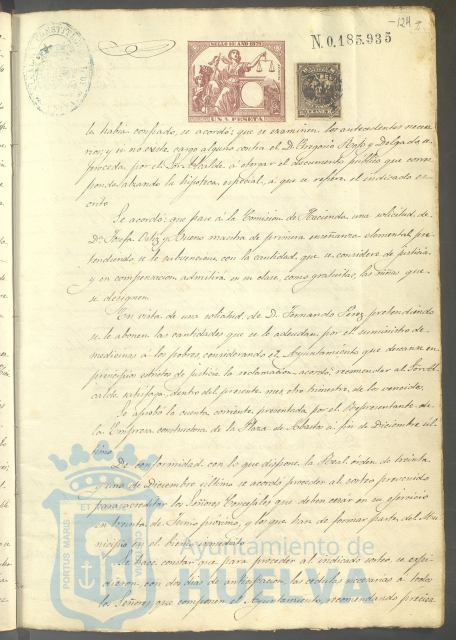 -124-
N. 0.185.935
SELLO 11º AÑO 1879
UNA PESETA
la había confiado, se acordó: que se examinen los antecedentes necesa-
rios, y si no existe cargo alguno contra el D. Gregorio y Delgado, se
proceda por el Sor. Alcalde á otorgar el documento público que corres-
ponda alzando la hipoteca especial, á que se refiere el indicado es-
crito
Se acordó: que pase á la Comision de Hacienda una solicitud de
Dª Josefa Ortiz y Bueno maestra de primera enseñanza elemental, pre-
tendiendo se le subvencione con la cantidad que se considere de justicia
y en compensacion admitirá en su clase, como gratuitas, las niñas que
se designen.
En vista de una solicitud de D. Fernando Perez pretendiendo
se le abonen las cantidades que se le adeudan por el suministro de
medicinas á los pobres, considerando el Ayuntamiento que descansa en
principios estrictos de justicia la reclamacion, acordó: recomendar al Sor. Al-
calde satisfaga dentro del presente mes, otro trimestre, de los vencidos.
Se aprobó la cuenta corriente presentada por el Representante de
la Empresa constructora de la Plaza de Abastos á fin de Diciembre úl-
timo.
De conformidad con lo que dispone la Real órden de treinta
y uno de Diciembre último se acordó proceder al sorteo prevenido
para acreditar los Señores Concejales que deben cesar en su ejercicio
en treinta de Junio proximo, y los que han de formar parte del Mu-
nicipio en el bienio inmediato.
Se hace constar que para proceder al indicado sorteo, se espi-
dieron con dos dias de anticipacion las cédulas necesarias á todos
los Señores que componen el Ayuntamiento, recomendando precisa
PORTUS MARIS ET
Ayuntamiento de
HUELVA